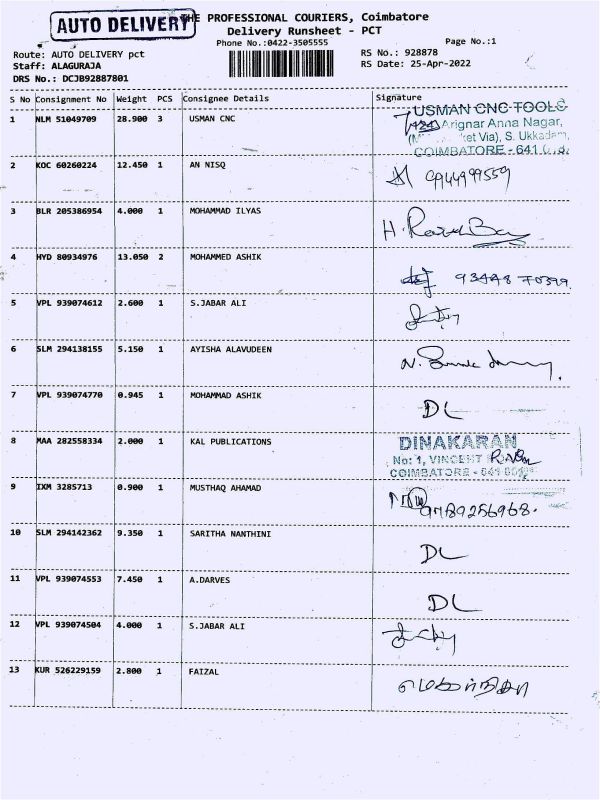 AUTO DELIVERY
THE PROFESSIONAL COURIERS, Coimbatore
Delivery Runsheet - PCT
Phone No.:0422-3505555
Page No.:1
Route: AUTO DELIVERY pct
RS No.: 928878
Staff: ALAGURAJA
RS Date: 25-Apr-2022
DRS No.: DCJB92887801
S No Consignment No Weight PCS Consignee Details Signature
1 NLM 51049709 28.900 3 USMAN CNC
USMAN CNC TOOLS
Arignar Anna Nagar,
ket Via), S. Ukkadam,
COIMBATORE - 641
2 KOC 60260224 12.450 1 AN NISQ
9944999559
3 BLR 205386954 4.000 1 MOHAMMAD ILYAS
H.
4 HYD 80934976 13.050 2 MOHAMMED ASHIK
93448 70399
5 VPL 939074612 2.600 1 S.JABAR ALI
6 SLM 294138155 5.150 1 AYISHA ALAVUDEEN
N.
7 VPL 939074770 0.945 1 MOHAMMAD ASHIK
DL
8 MAA 282558334 2.000 1 KAL PUBLICATIONS
DINAKARAN
No: 1, VINCENT
COIMBATORE - 641
9 IXM 3285713 0.900 1 MUSTHAQ AHAMAD
9789256968.
10 SLM 294142362 9.350 1 SARITHA NANTHINI
DL
11 VPL 939074553 7.450 1 A.DARVES
DL
12 VPL 939074504 4.000 1 S.JABAR ALI
13 KUR 526229159 2.800 1 FAIZAL